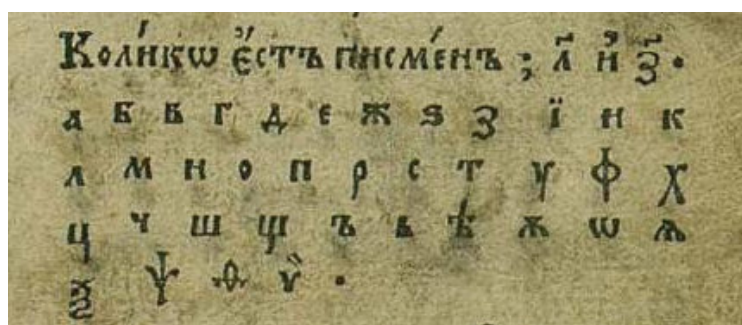 Коли́кѡ є҆́стъ писме́нъ ; л҃ и҆ ѯ҃ .
а б в г д е ж ѕ з ї и к
л м н о п р с т у ф х
ц ч ш щ ъ ь ѣ ѫ ѡ ѧ
ѯ ѱ ѳ ѷ .